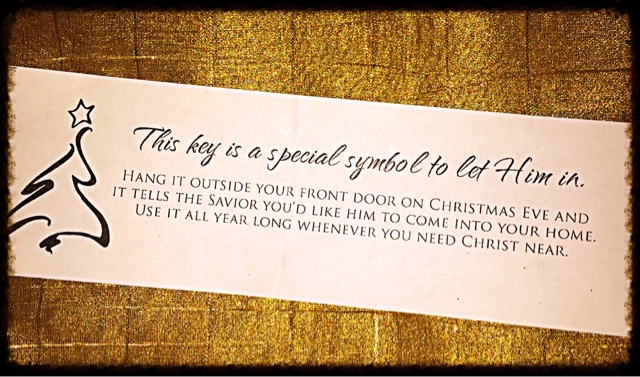 This key is a special symbol to let Him in.
Hang it outside your front door on Christmas Eve and
it tells the Savior you'd like him to come into your home.
Use it all year long whenever you need Christ near.